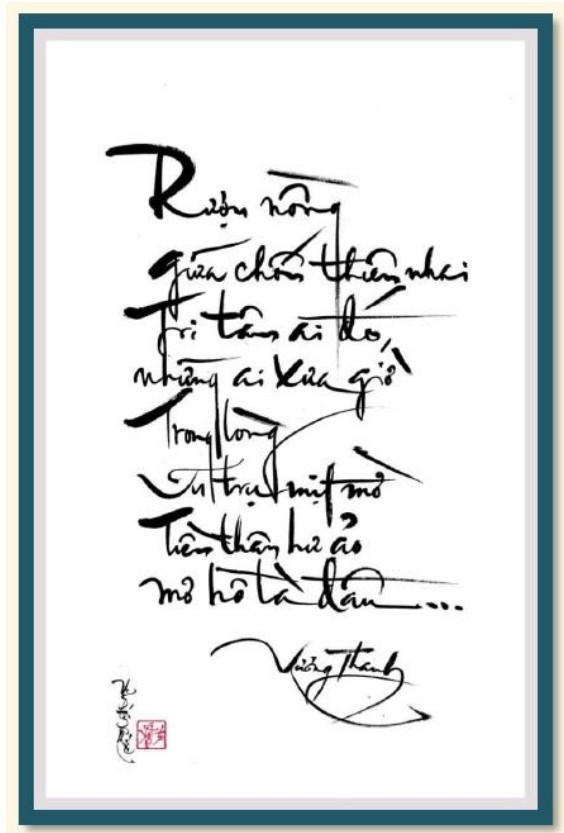 Rượu nồng
giữa chốn thiên nhai
Tri tâm ai đó,
những ai xưa giờ
Trong lòng
Vũ trụ mịt mờ
Tiền thân hư ảo
mơ hồ là đâu....
Vương Thanh